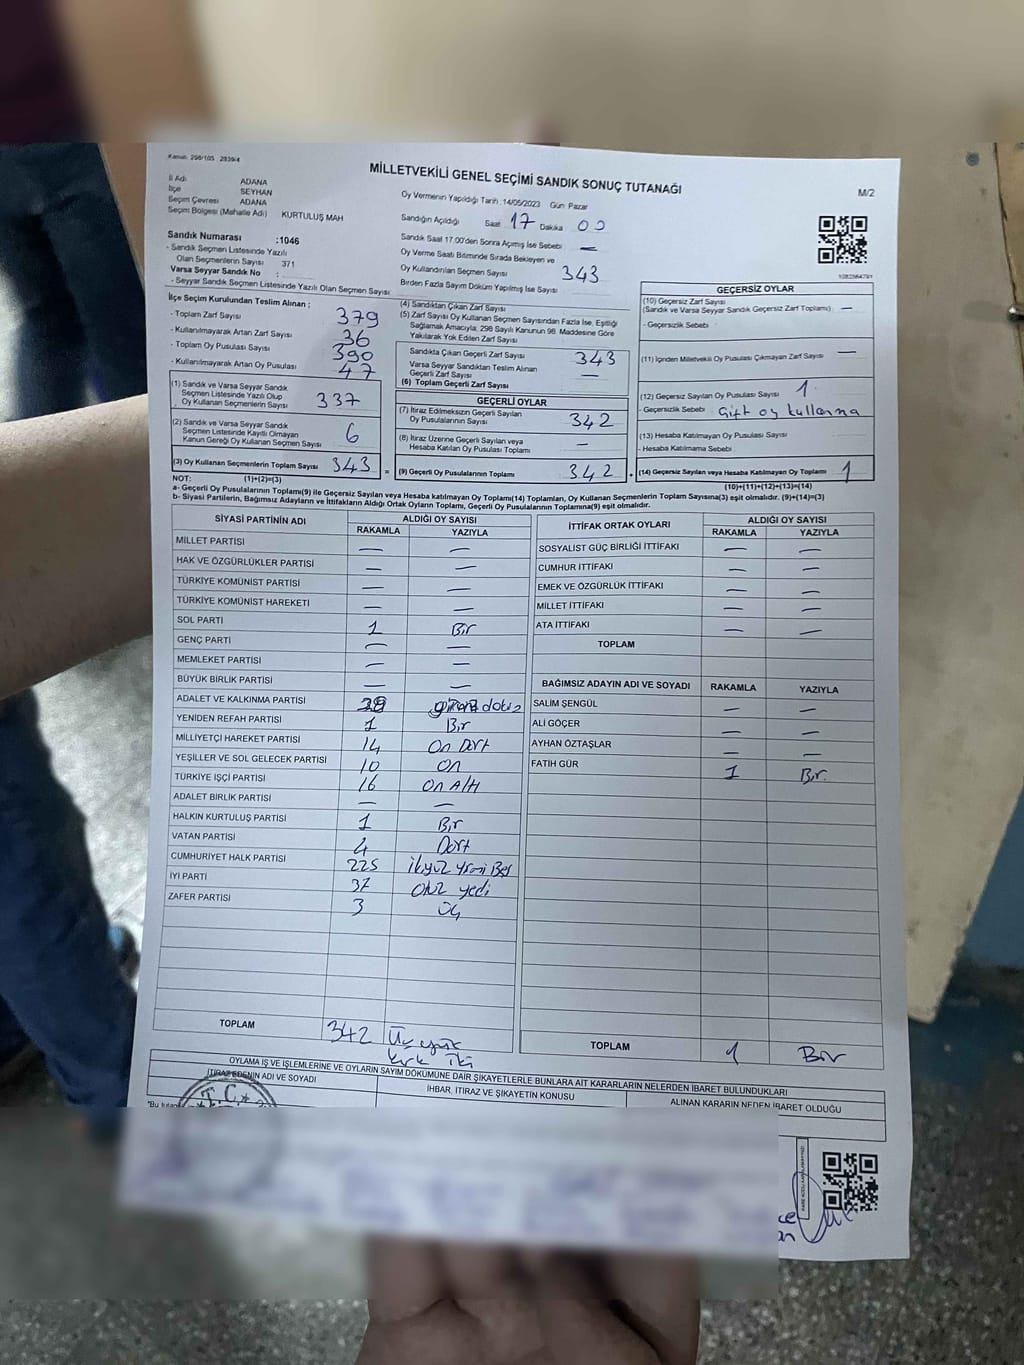 Kanun: 298/105 2839/4
MİLLETVEKİLİ GENEL SEÇİMİ SANDIK SONUÇ TUTANAĞI
M/2
İl Adı ADANA
İlçe SEYHAN
Seçim Çevresi ADANA
Seçim Bölgesi (Mahalle Adı) KURTULUŞ MAH
Oy Vermenin Yapıldığı Tarih :14/05/2023 Gün Pazar
Sandığın Açıldığı Saat 17 Dakika 00
Sandık Saat 17.00'den Sonra Açımış İse Sebebi —
Oy Verme Saati Bitiminde Sırada Bekleyen ve
Oy Kullandırılan Seçmen Sayısı 343
Birden Fazla Sayım Döküm Yapılmış İse Sayısı
Sandık Numarası :1046
- Sandık Seçmen Listesinde Yazılı
Olan Seçmenlerin Sayısı 371
Varsa Seyyar Sandık No :
- Seyyar Sandık Seçmen Listesinde Yazılı Olan Seçmen Sayısı
İlçe Seçim Kurulundan Teslim Alınan :
- Toplam Zarf Sayısı 379
- Kullanılmayarak Artan Zarf Sayısı 36
- Toplam Oy Pusulası Sayısı 390
- Kullanılmayarak Artan Oy Pusulası 47
(1) Sandık ve Varsa Seyyar Sandık
Seçmen Listesinde Yazılı Olup
Oy Kullanan Seçmenlerin Sayısı 337
(2) Sandık ve Varsa Seyyar Sandık
Seçmen Listesinde Kayıtlı Olmayan
Kanun Gereği Oy Kullanan Seçmen Sayısı 6
(3) Oy Kullanan Seçmenlerin Toplam Sayısı 343 =
(1)+(2)=(3)
(4) Sandıktan Çıkan Zarf Sayısı
(5) Zarf Sayısı Oy Kullanan Seçmen Sayısından Fazla İse, Eşitliği
Sağlamak Amacıyla; 298 Sayılı Kanunun 98. Maddesine Göre
Yakılarak Yok Edilen Zarf Sayısı
Sandıkta Çıkan Geçerli Zarf Sayısı 343
Varsa Seyyar Sandıktan Teslim Alınan
Geçerli Zarf Sayısı —
(6) Toplam Geçerli Zarf Sayısı
GEÇERLİ OYLAR
(7) İtiraz Edilmeksizin Geçerli Sayılan
Oy Pusulalarının Sayısı 342
(8) İtiraz Üzerine Geçerli Sayılan veya
Hesaba Katılan Oy Pusulası Toplamı —
(9) Geçerli Oy Pusulalarının Toplamı 342 +
GEÇERSİZ OYLAR
(10) Geçersiz Zarf Sayısı
(Sandık ve Varsa Seyyar Sandık Geçersiz Zarf Toplamı) —
- Geçersizlik Sebebi
(11) İçinden Milletvekili Oy Pusulası Çıkmayan Zarf Sayısı —
(12) Geçersiz Sayılan Oy Pusulası Sayısı 1
- Geçersizlik Sebebi Çift oy kullanma
(13) Hesaba Katılmayan Oy Pusulası Sayısı
- Hesaba Katılmama Sebebi
(14) Geçersiz Sayılan veya Hesaba Katılmayan Oy Toplamı 1
(10)+(11)+(12)+(13)=(14)
NOT:
a- Geçerli Oy Pusulalarının Toplamı(9) ile Geçersiz Sayılan veya Hesaba katılmayan Oy Toplamı(14) Toplamları, Oy Kullanan Seçmenlerin Toplam Sayısına(3) eşit olmalıdır. (9)+(14)=(3)
b- Siyasi Partilerin, Bağımsız Adayların ve İttifakların Aldığı Ortak Oyların Toplamı, Geçerli Oy Pusulalarının Toplamına(9) eşit olmalıdır.
SİYASİ PARTİNİN ADI ALDIĞI OY SAYISI
RAKAMLA YAZIYLA
MİLLET PARTİSİ — —
HAK VE ÖZGÜRLÜKLER PARTİSİ — —
TÜRKİYE KOMÜNİST PARTİSİ — —
TÜRKİYE KOMÜNİST HAREKETİ — —
SOL PARTİ 1 Bir
GENÇ PARTİ — —
MEMLEKET PARTİSİ — —
BÜYÜK BİRLİK PARTİSİ — —
ADALET VE KALKINMA PARTİSİ
YENİDEN REFAH PARTİSİ 1 Bir
MİLLİYETÇİ HAREKET PARTİSİ 14 On Dört
YEŞİLLER VE SOL GELECEK PARTİSİ 10 On
TÜRKİYE İŞÇİ PARTİSİ 16 On Altı
ADALET BİRLİK PARTİSİ — —
HALKIN KURTULUŞ PARTİSİ 1 Bir
VATAN PARTİSİ 4 Dört
CUMHURİYET HALK PARTİSİ 225 ikiyüz yirmi Beş
İYİ PARTİ 37 Otuz yedi
ZAFER PARTİSİ 3 Üç
TOPLAM 342 Üç yüz
kırk iki
İTTİFAK ORTAK OYLARI ALDIĞI OY SAYISI
RAKAMLA YAZIYLA
SOSYALİST GÜÇ BİRLİĞİ İTTİFAKI — —
CUMHUR İTTİFAKI — —
EMEK VE ÖZGÜRLÜK İTTİFAKI — —
MİLLET İTTİFAKI — —
ATA İTTİFAKI — —
TOPLAM
BAĞIMSIZ ADAYIN ADI VE SOYADI RAKAMLA YAZIYLA
SALİM ŞENGÜL — —
ALİ GÖÇER — —
AYHAN ÖZTAŞLAR — —
FATİH GÜR 1 Bir
TOPLAM 1 Bir
OYLAMA İŞ VE İŞLEMLERİNE VE OYLARIN SAYIM DÖKÜMÜNE DAİR ŞİKAYETLERLE BUNLARA AİT KARARLARIN NELERDEN İBARET BULUNDUKLARI
İTİRAZ EDENİN ADI VE SOYADI
İHBAR, İTİRAZ VE ŞİKAYETİN KONUSU
ALINAN KARARIN NEDEN İBARET OLDUĞU
T.C.